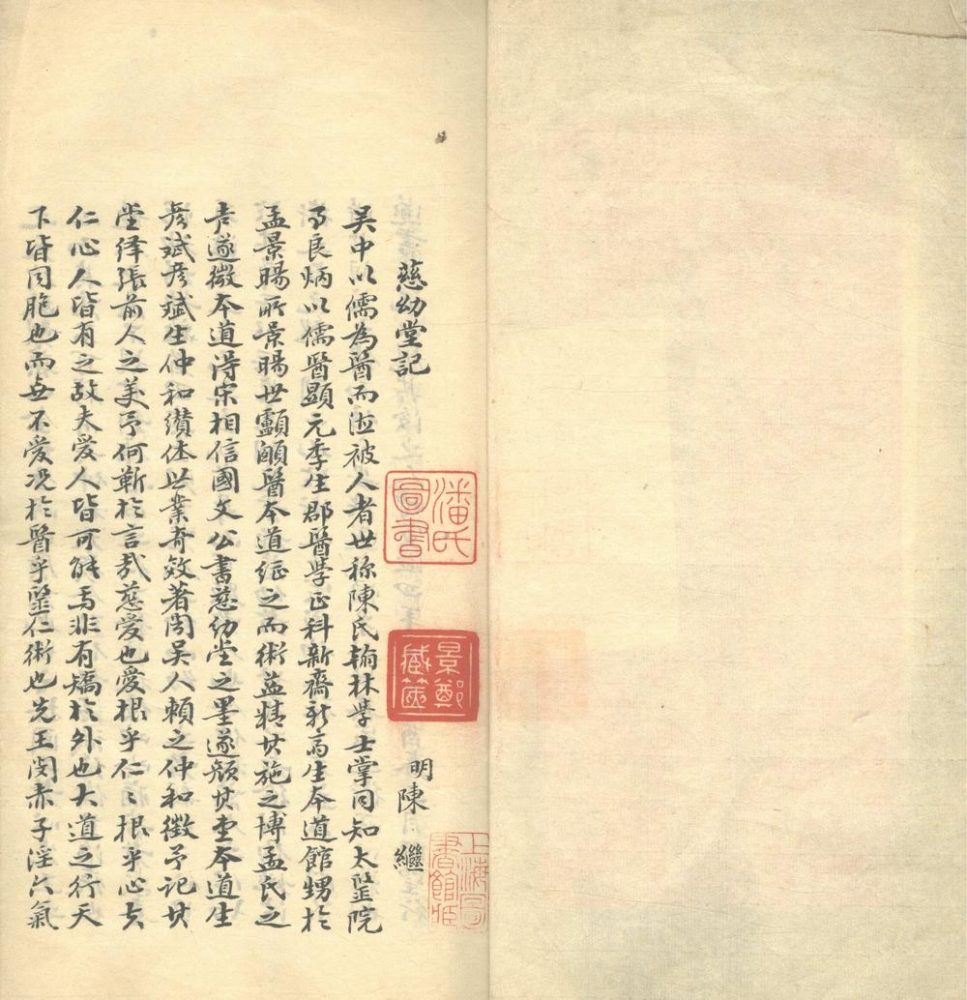 慈幼堂記
明陳繼
吳中以儒為醫而被人者世称陳氏翰林學士掌同知太毉院
事良炳以儒醫顯元季生郡醫學正科新齋新齋生本道館甥於
孟景暘所景暘世顱顖醫本道従之而術益精其施之博孟氏之
遂徵本道得宋相信國文公書慈幼堂之墨遂顏其堂本道生
彦斌彦斌生仲和纘休世業奇效著聞吳人頼之仲和徵予記其
堂繹張前人之美予何靳於言哉慈愛也愛根乎仁〻根乎心夫
仁心人皆有之故夫愛人皆可能焉非有矯於外也大道之行天
下皆同胞也而無不愛况於醫乎毉仁術也先王閔赤子淫六氣
潘氏圖書
景鄭藏篋
上海圖書館藏